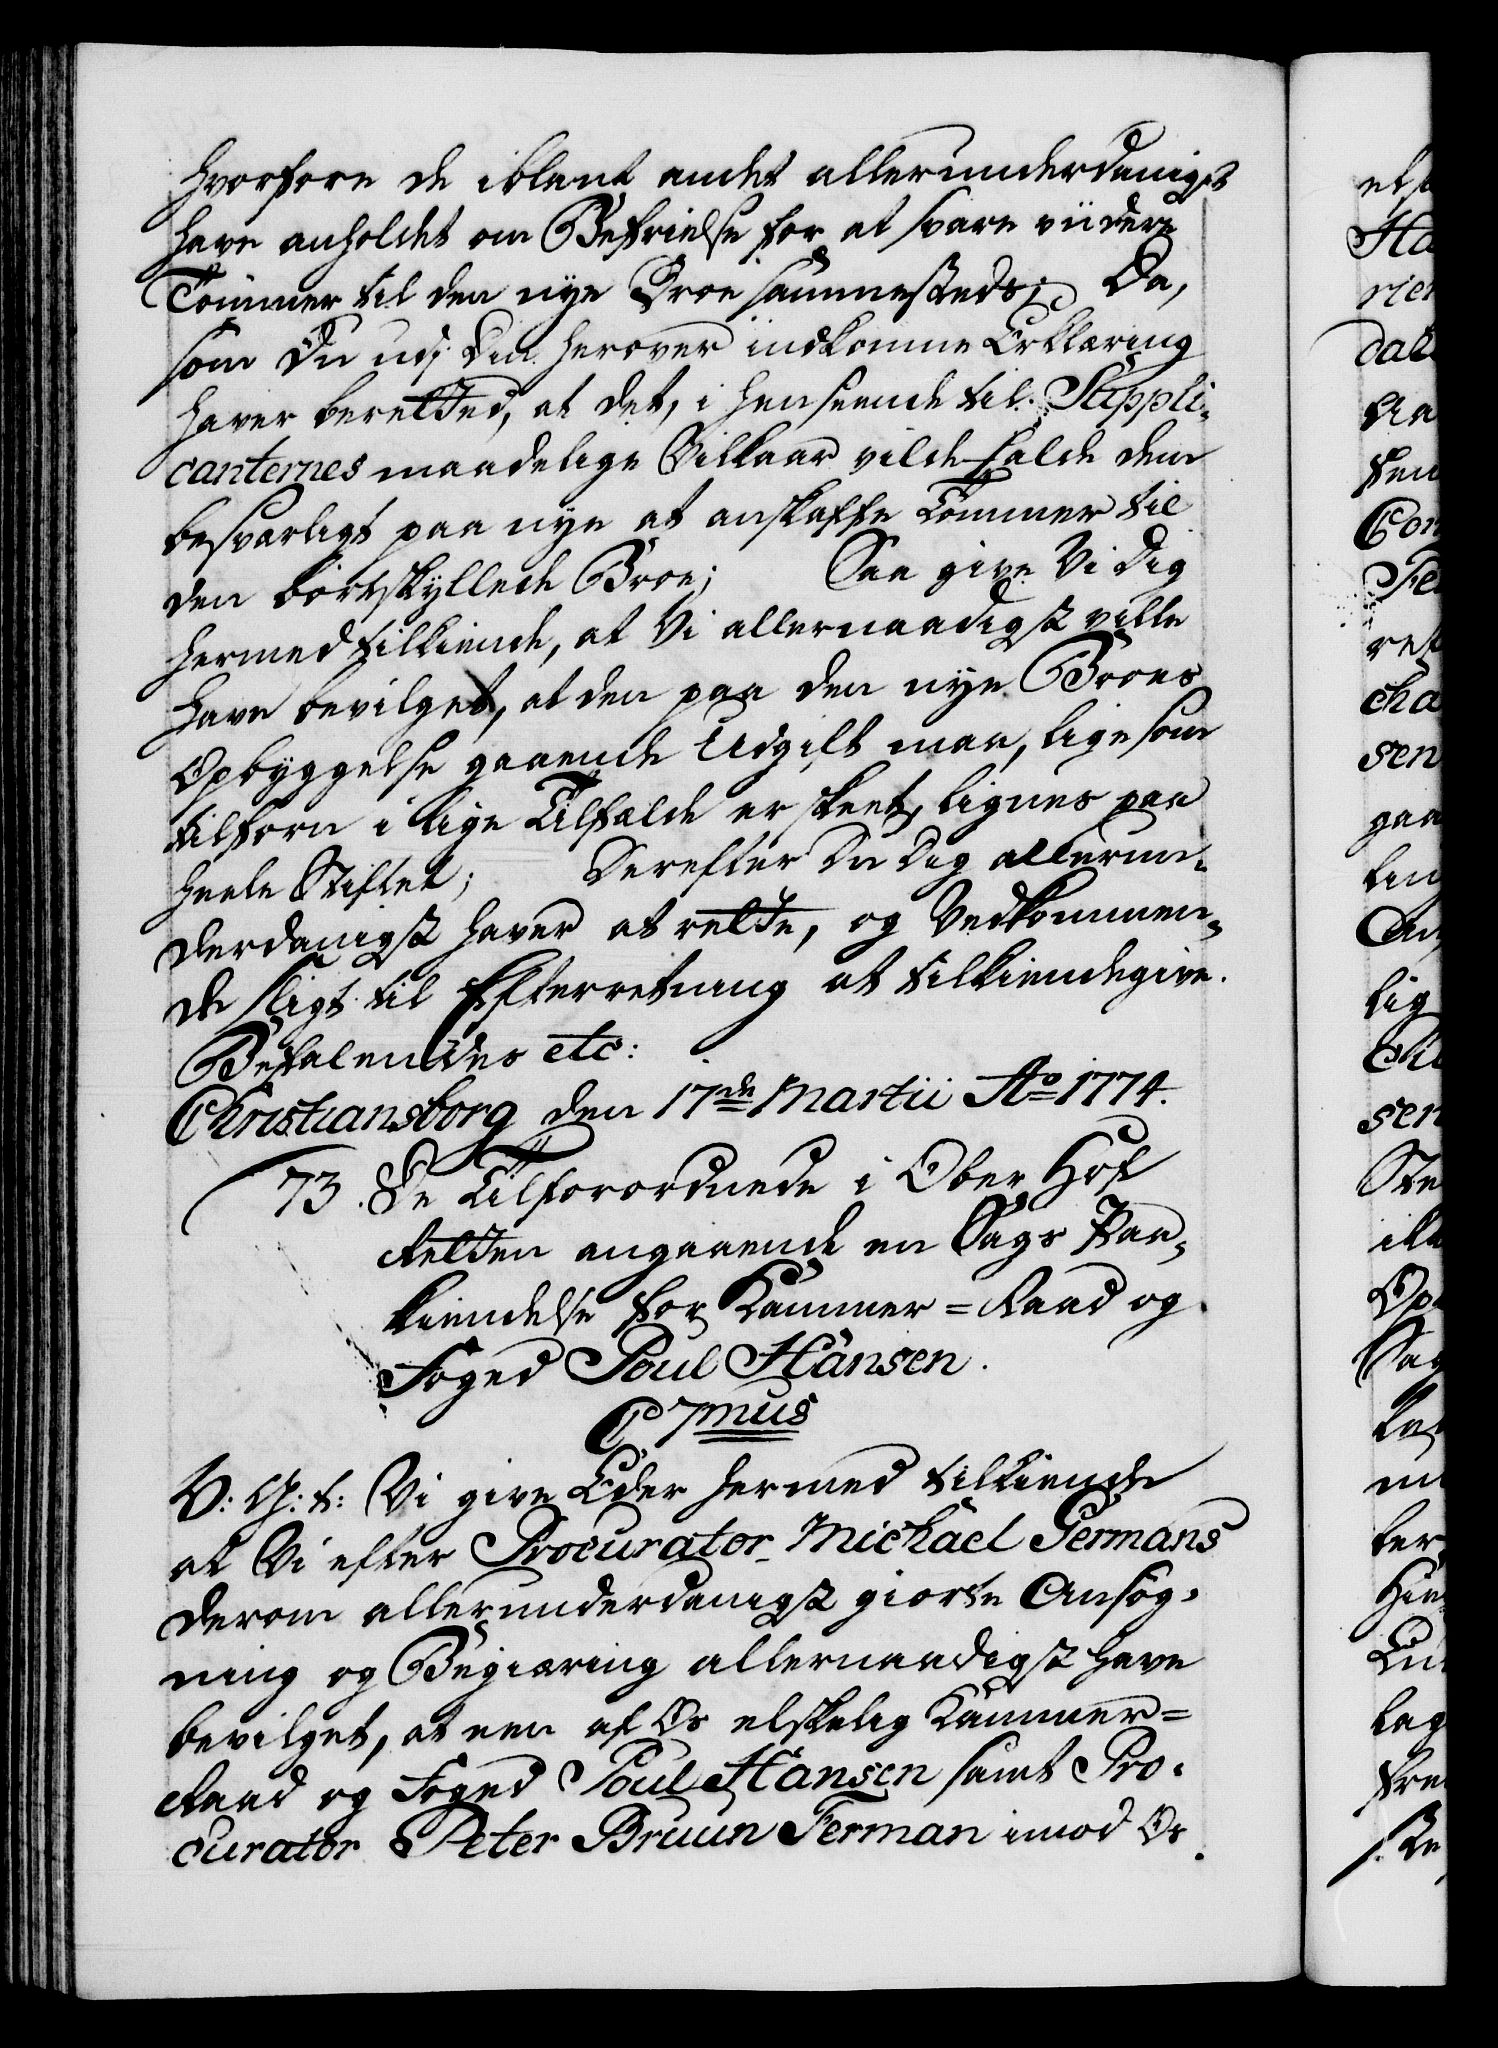 hvorfore de iblant andet allerunderdanigst
have anholdet om Befrielse for at svare viidere
Tømmer til den nye Broe sammesteds; Da,
som Du udj Din herover indkomne Erklæring
haver berettet, at det, i henseende til Suppli-
canternes maadelige Vilkaar vilde falde dem
besværligt paa nye at anskaffe Tømmer til
den bortskyllede Broe; Saa give Vi Dig
hermed tilkiende, at Vi allernaadigst ville
have bevilget, at den paa den nye Broes
Opbyggelse gaaende Udgift maa, lige som
tilforn i lige Tilfælde er skeet, lignes paa
heele Stiftet; Derefter Du Dig allerun-
derdanigst haver at rette, og Vedkommen-
de sligt til Efterretning at tilkiendegive.
Befalendes etc:
Christiansborg den 17de Martii Ao 1774.
73. De Tilforordnede i Ober Hof
Retten angaaende en Sags Paa-
kiendelse for Kammer=Raad og
Foged Poul Hansen.
C 7mus
V: G: t: Vi give Eder hermed tilkiende
at Vi efter Procurator Michael Germans
derom allerunderdanigst giorte Ansøg-
ning og Begiæring allernaadigst have
bevilget, at een af Os elskelig Kammer=
Raad og Foged Poul Hansen samt Pro-
curator Peter Bruun Ferman imod Os